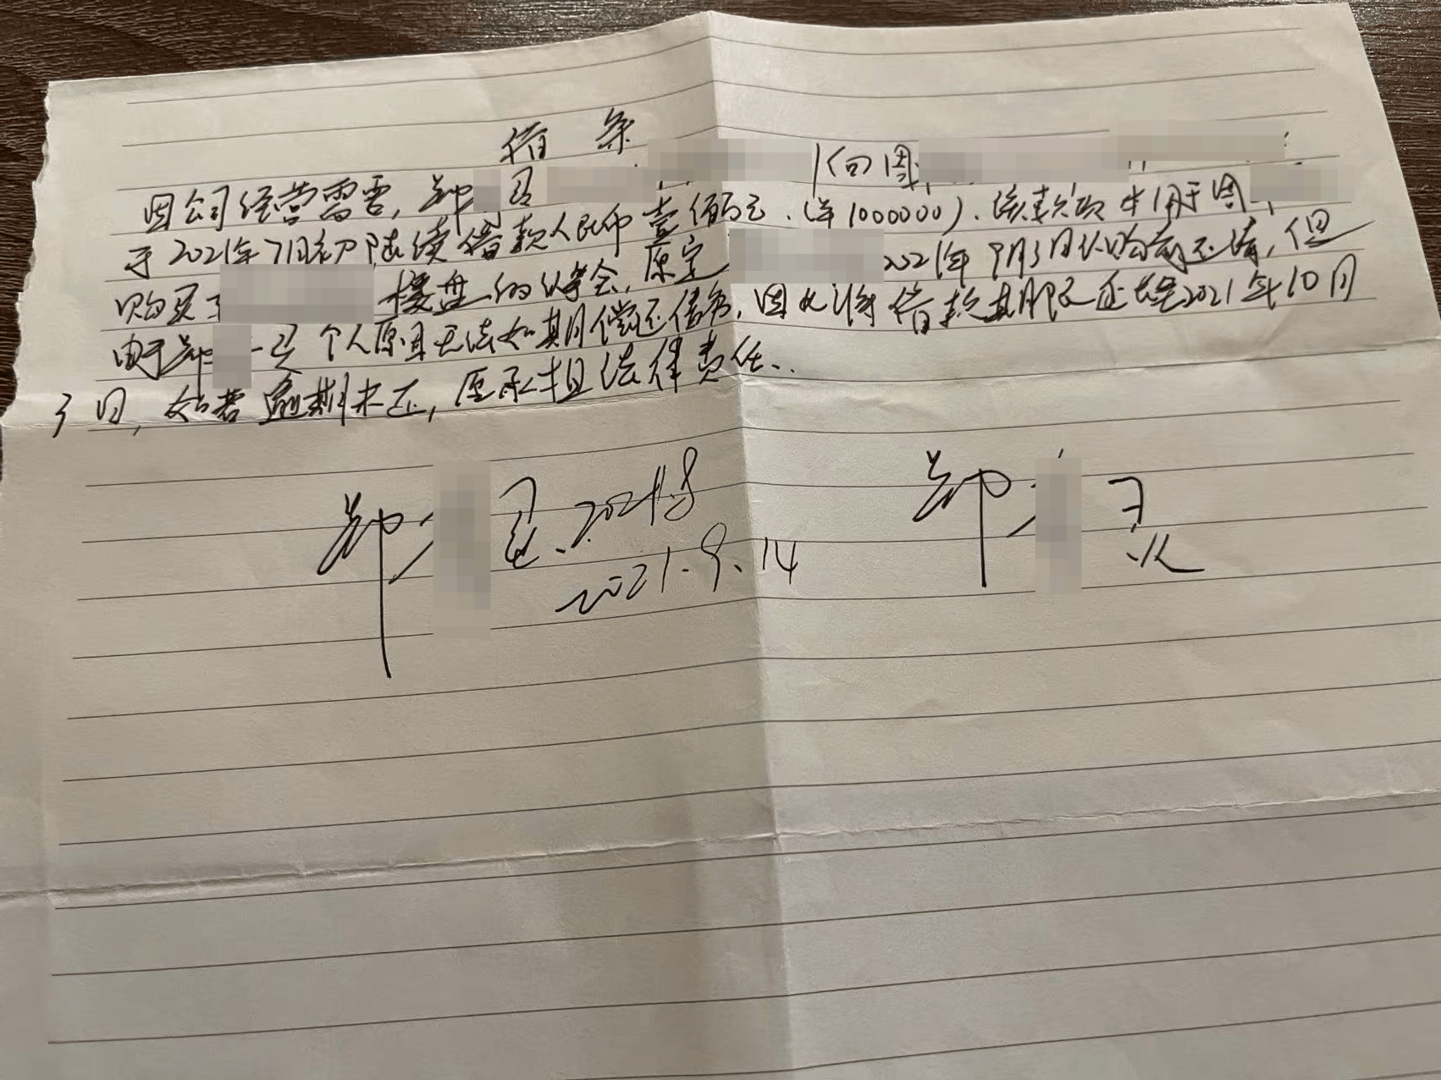 借 条
因公司经营需要，郑 向周
于2021年7月初陆续借款人民币壹佰万元.（¥1000000）.该款项本用于周
购买 楼盘的 ，原定 2021年9月3日 前还清，但
由于郑 个人原因无法如期偿还债务，因此将借款期限延长至2021年10月
3日，如若逾期未还，愿承担法律责任.
郑
2021.9.14
郑 灵